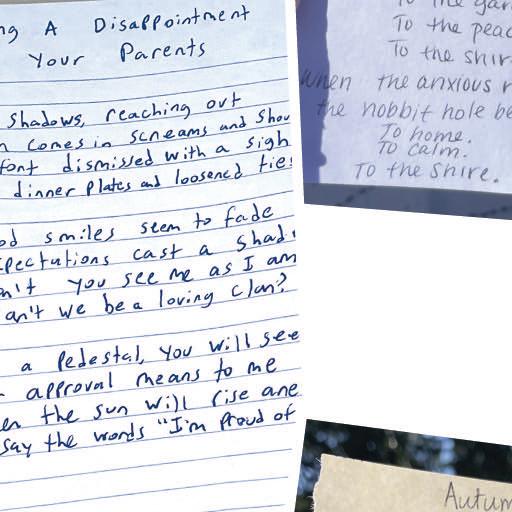 ng A Disappointment
Your Parents
Shadows, reaching out
n comes in screams and shou
font dismissed with a sigh
dinner plates and loosened ties
od smiles seem to fade
pectations cast a shad
n't you see me as I am
an't we be a loving clan?
a Pedestal, you will see
approval means to me
en the sun will rise and
say the words "I'm Proud of
To the gar
To the peac
To the shir
When the anxious r
the hobbit hole be
To home.
To calm.
To the Shire.
Autum